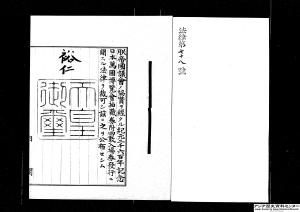 法律第七十八號
朕帝國議會ノ協贊ヲ經タル紀元二千六百年記念
日本萬國博覽會抽籤券附囘數入場券發行ニ
關スル法律ヲ裁可シ茲ニ之ヲ公布セシム
裕仁
天皇御璽